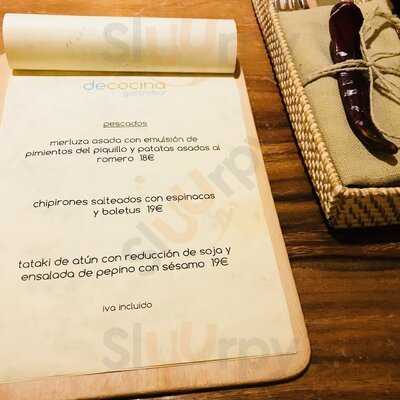 decocina
pescados
merluza asada con emulsión de
pimientos del piquillo y patatas asadas al
romero 18€
chipirones salteados con espinacas
y boletus 19€
tataki de atún con reducción de soja y
ensalada de pepino con sésamo 19€
iva incluido
sluurpy